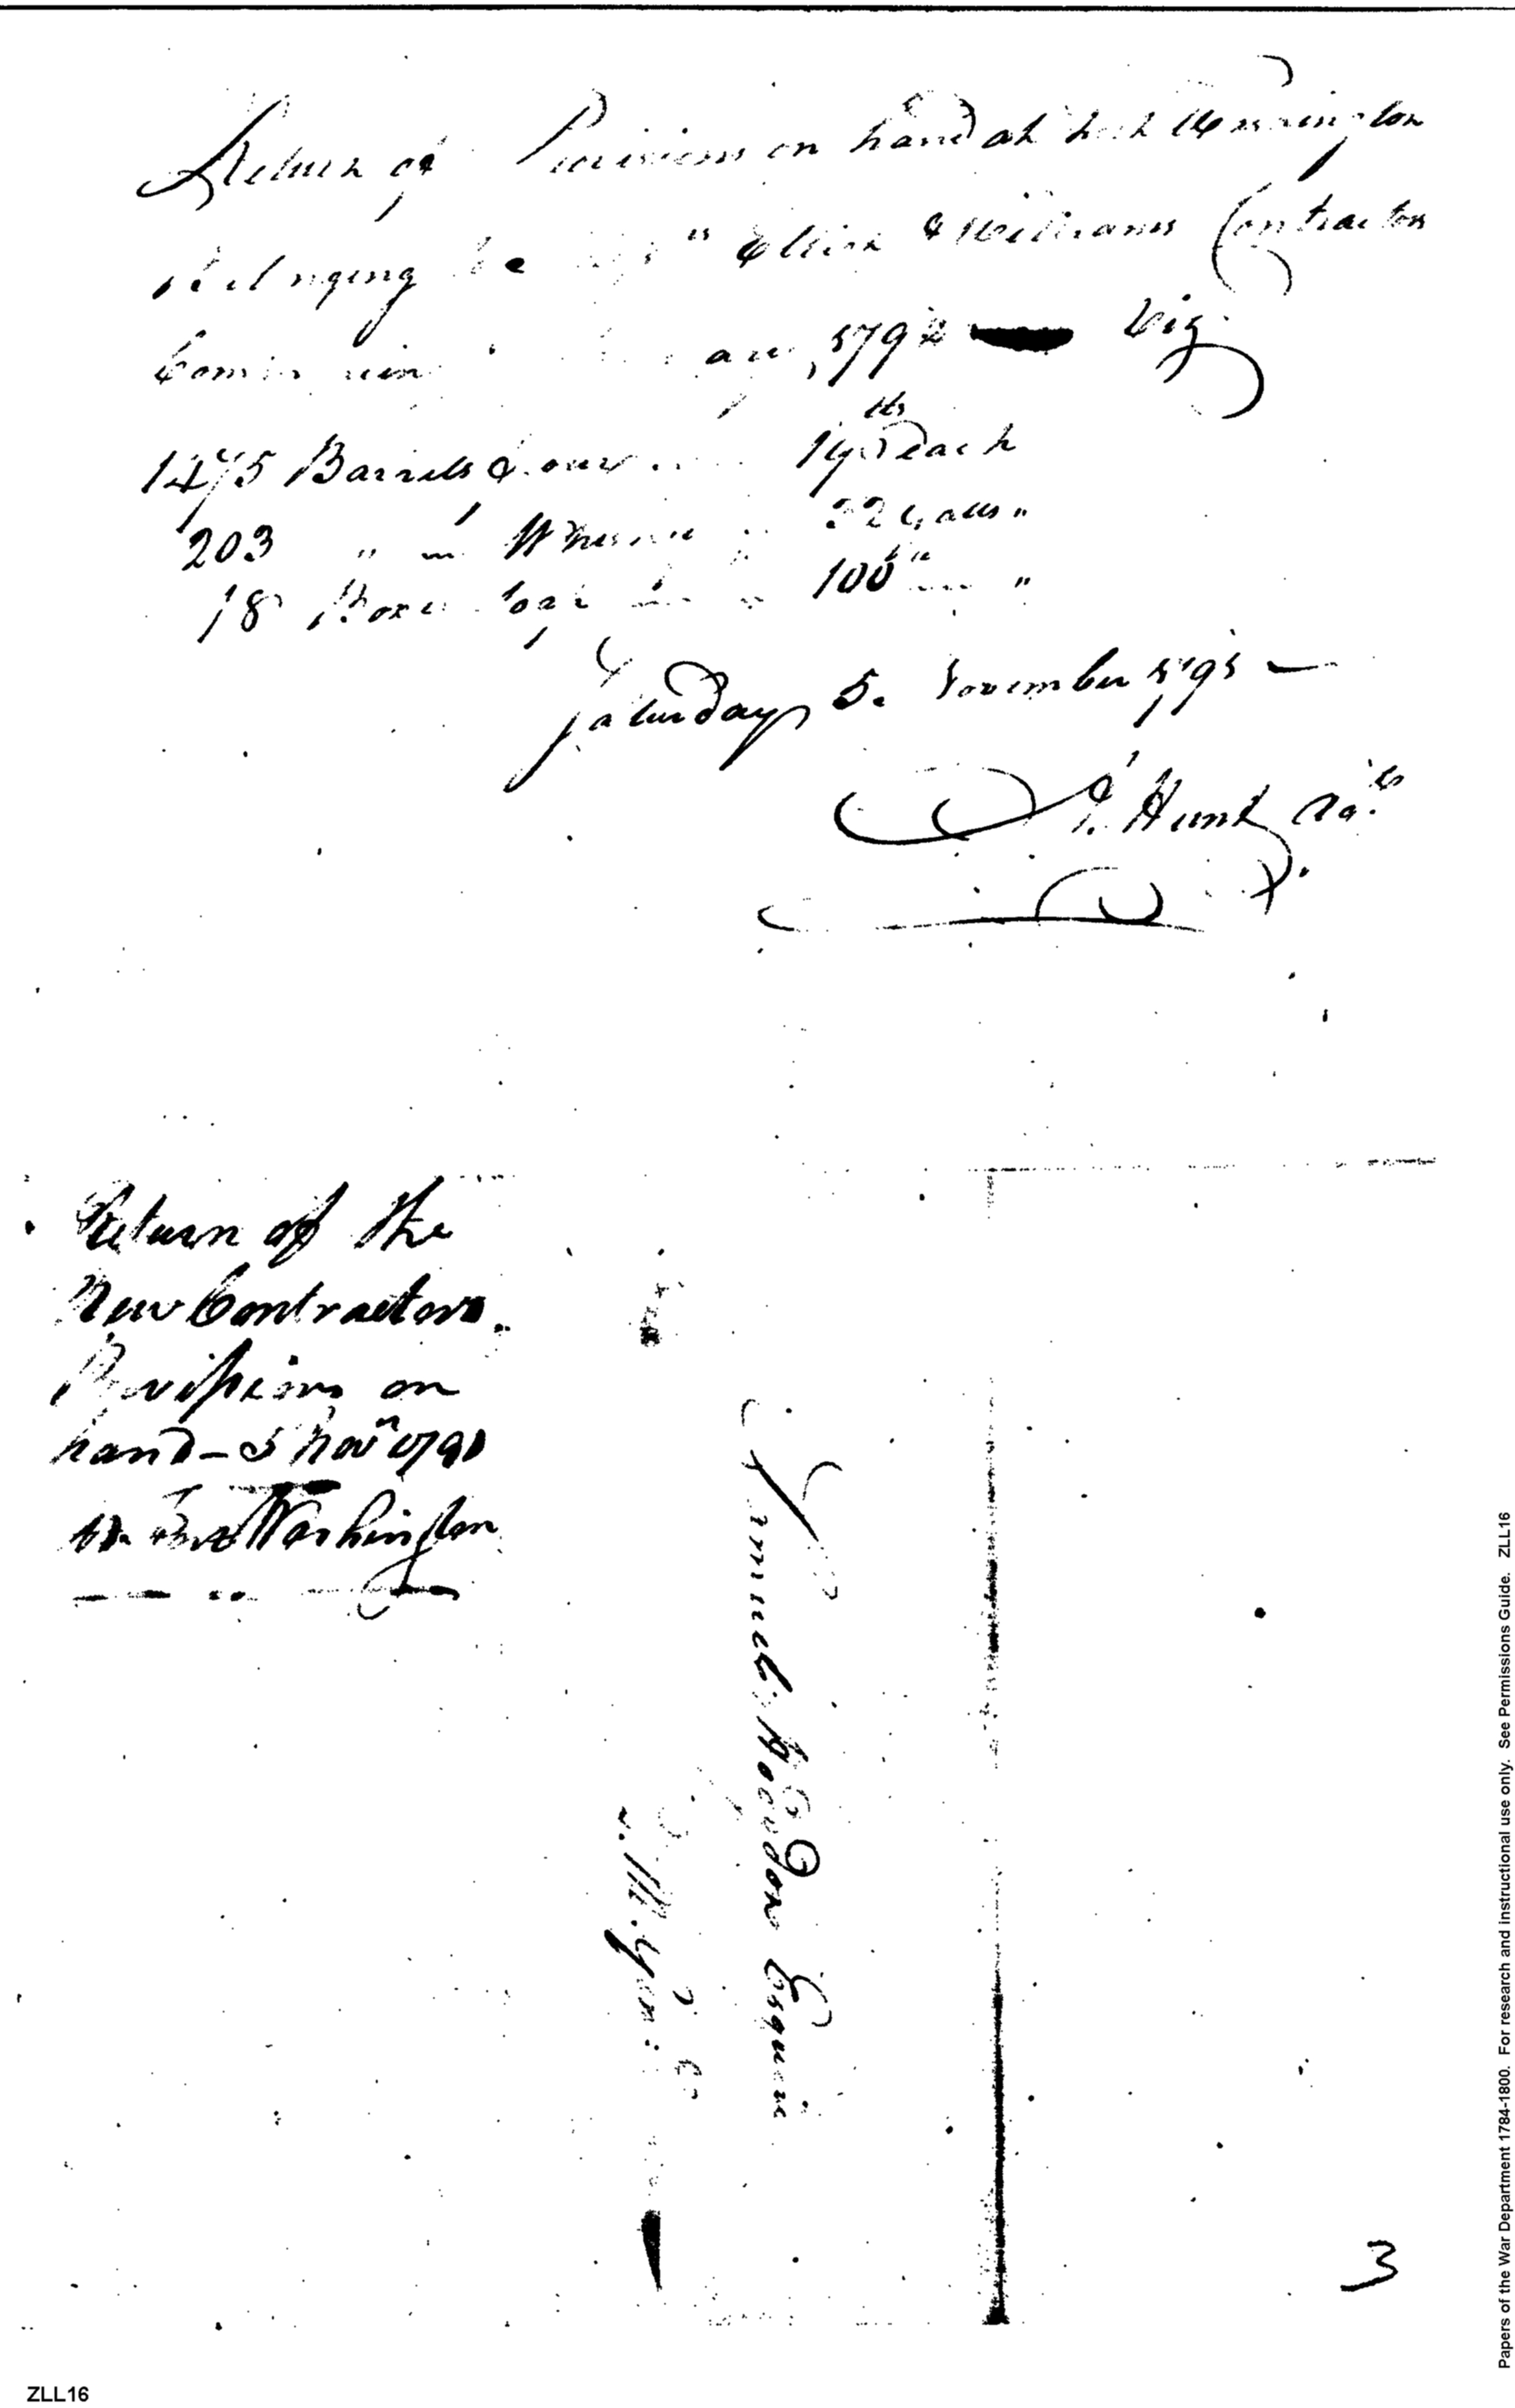 Return of Provisions on hand at Fort Washington
belonging to Elliot & Williams Contractors
1792 Viz
1475 Barrels flour 190 lbs each
203 " Whiskey 32 Galls "
18 Boxes Soap 100 "
Saturday 5. November 1791 —
Hunt
Return of the
New Contractors
Provisions on
hand - 5 Novr 1791
Fort Washington
Samuel Hodgdon Esquire
Q. M. Gen:
3
ZLL16
Papers of the War Department 1784-1800. For research and instructional use only. See Permissions Guide. ZLL16